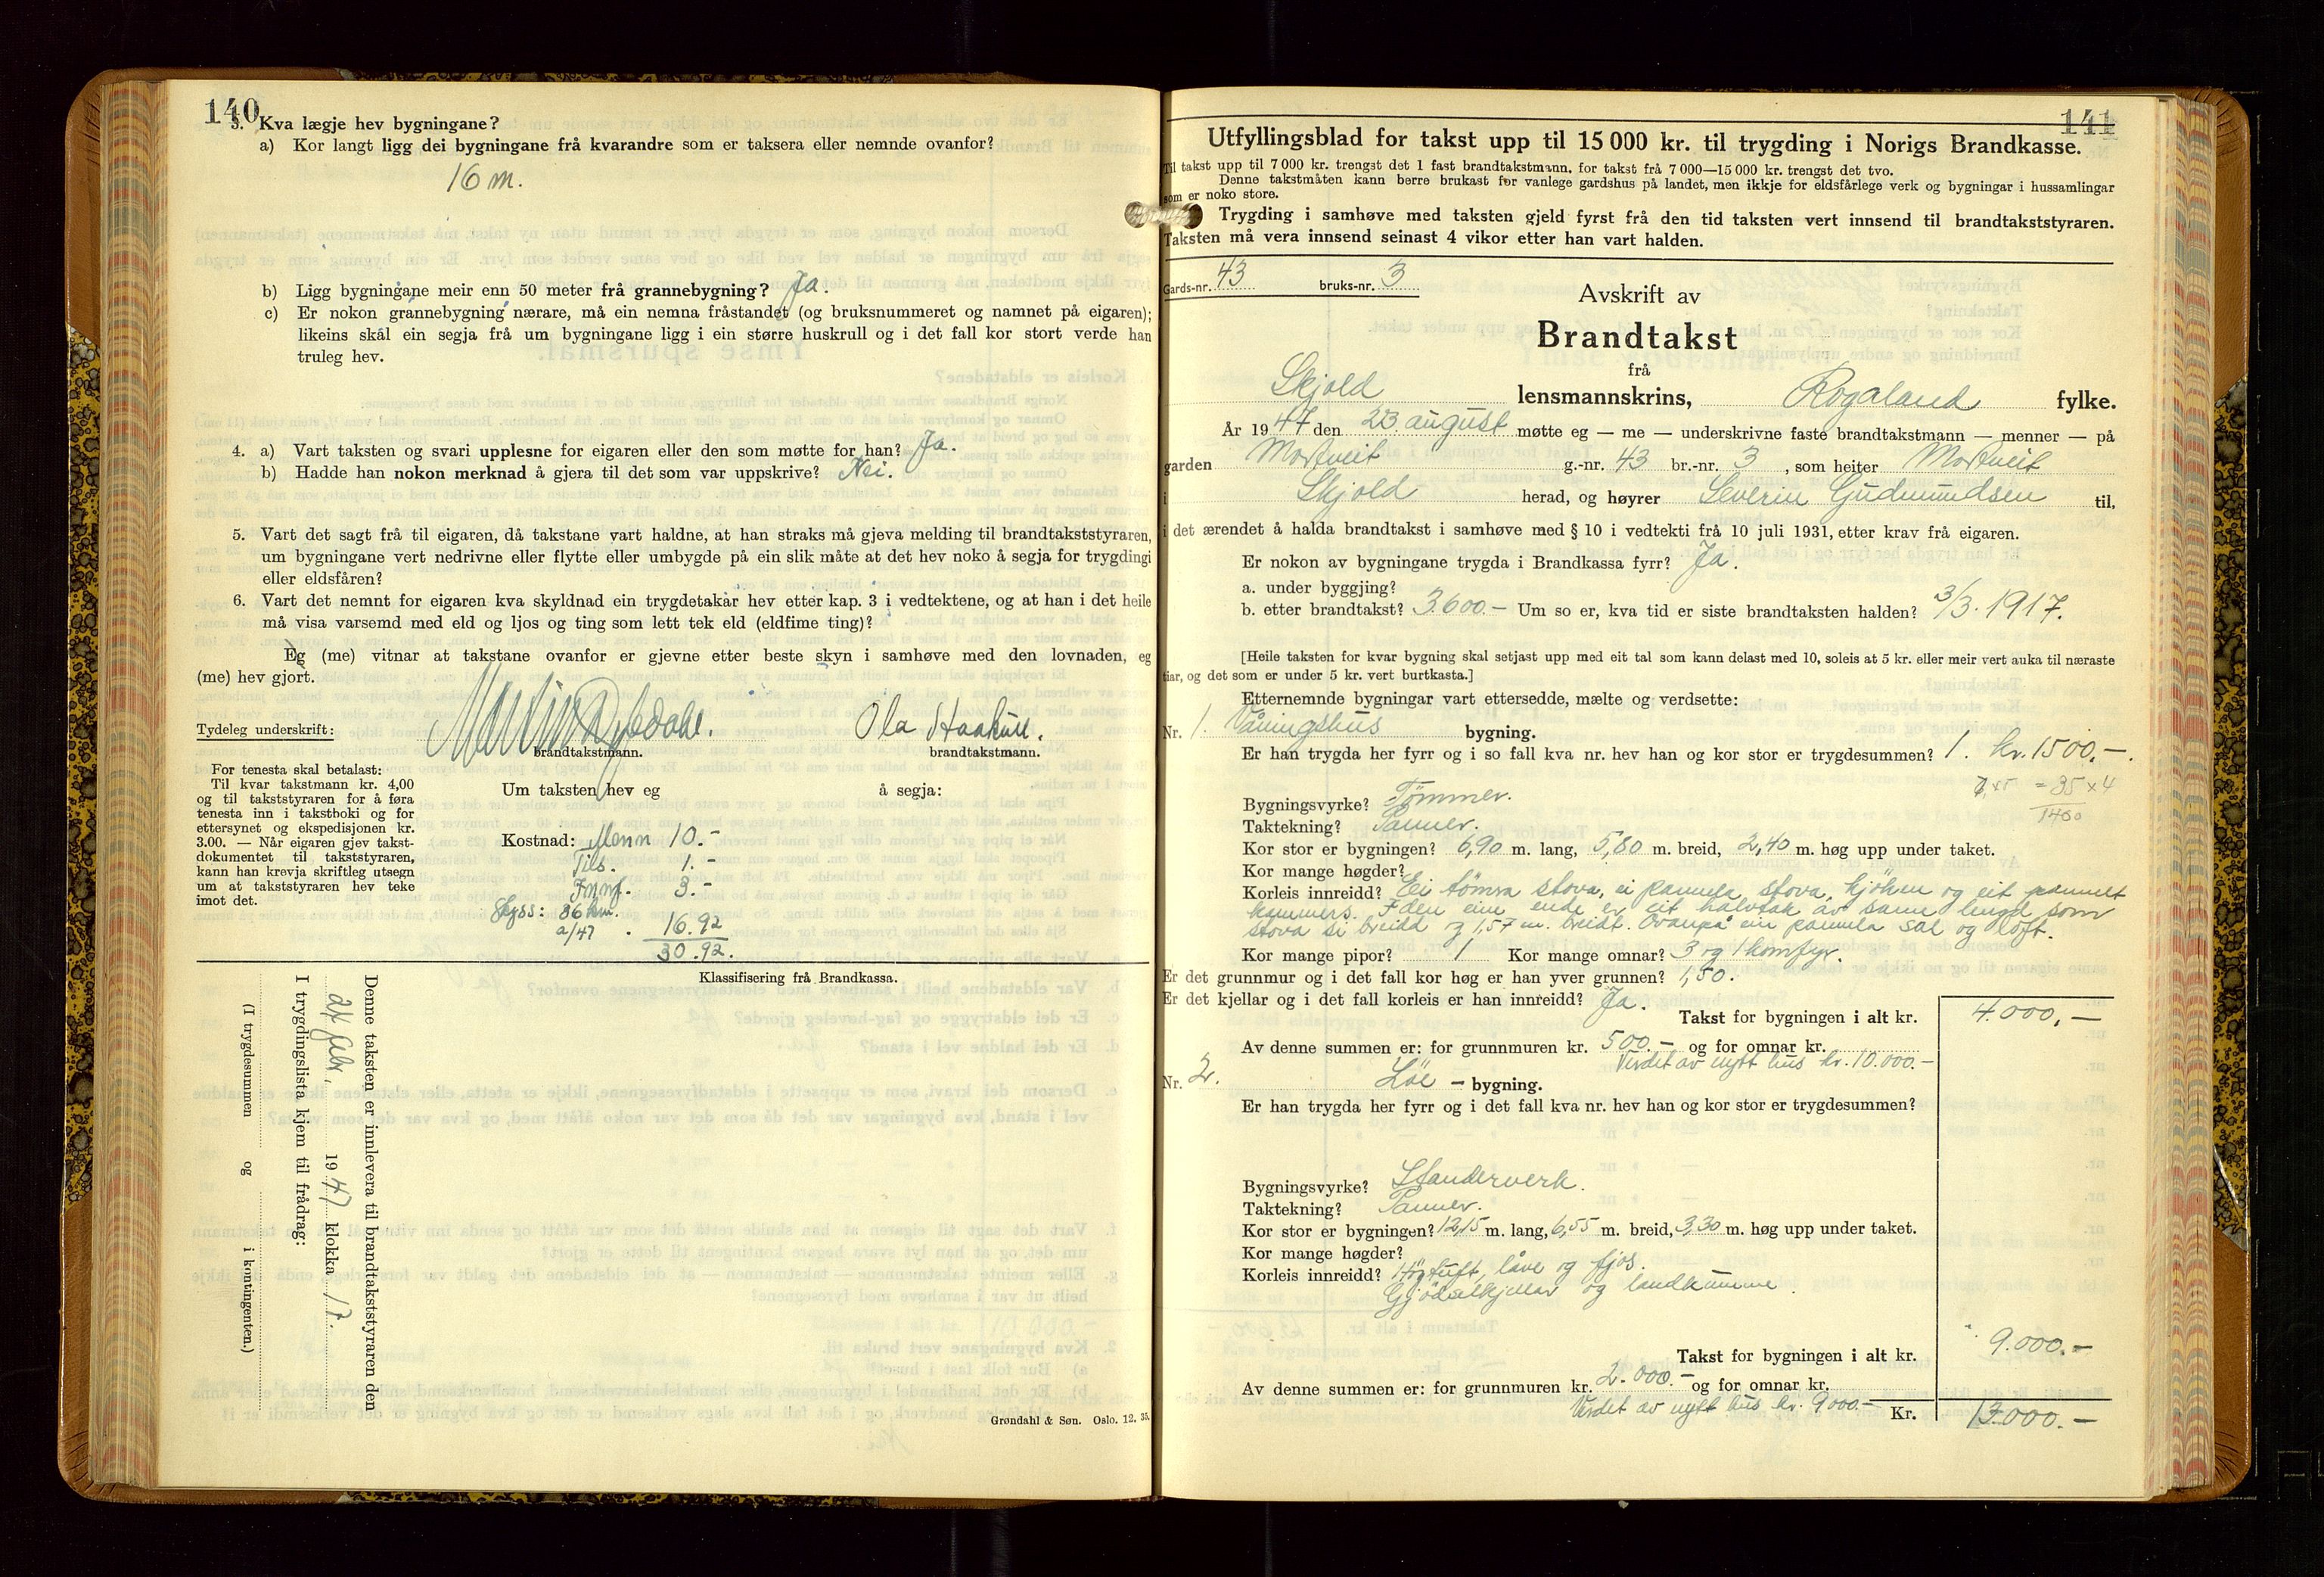 140
3. Kva lægje hev bygningane?
a) Kor langt ligg dei bygningane frå kvarandre som er taksera eller nemnde ovanfor?
16 m.
b) Ligg bygningane meir enn 50 meter frå grannebygning? Ja.
c) Er nokon grannebygning nærare, må ein nemna fråstandet (og bruksnummeret og namnet på eigaren);
likeins skal ein segja frå um bygningane ligg i ein større huskrull og i det fall kor stort verde han
truleg hev.
4. a) Vart taksten og svari upplesne for eigaren eller den som møtte for han? Ja.
b) Hadde han nokon merknad å gjera til det som var uppskrive? Nei.
5. Vart det sagt frå til eigaren, då takstane vart haldne, at han straks må gjeva melding til brandtakststyraren,
um bygningane vert nedrivne eller flytte eller umbygde på ein slik måte at det hev noko å segja for trygdingi
eller eldsfåren?
6. Vart det nemnt for eigaren kva skyldnad ein trygdetakar hev etter kap. 3 i vedtektene, og at han i det heile
må visa varsemd med eld og ljos og ting som lett tek eld (eldfime ting)?
Eg (me) vitnar at takstane ovanfor er gjevne etter beste skyn i samhøve med den lovnaden, eg
(me) hev gjort.
Tydeleg underskrift:
brandtakstmann.
Ola
brandtakstmann.
For tenesta skal betalast:
Til kvar takstmann kr. 4,00
og til takststyraren for å føra
tenesta inn i takstboki og for
ettersynet og ekspedisjonen kr.
3.00. — Når eigaren gjev takst-
dokumentet til takststyraren,
kann han krevja skriftleg utsegn
um at takststyraren hev teke
imot det.
Um taksten hev eg å segja:
Kostnad: Menn 10.-
Tils. 1.-
Innf. 3.-
Skyss: 36 km.
a/47 . 16.92
30.92.
Klassifisering frå Brandkassa.
Denne taksten er innlevera til brandtakststyraren den
1947 klokka 17.
I trygdingslista kjem til frådrag:
(I trygdesummen og i kontingenten.)
Grøndahl & Søn. Oslo. 12. 35.
141
Utfyllingsblad for takst upp til 15 000 kr. til trygding i Norigs Brandkasse.
Til takst upp til 7 000 kr. trengst det 1 fast brandtakstmann, for takst frå 7 000—15 000 kr. trengst det tvo.
Denne takstmåten kann berre brukast for vanlege gardshus på landet, men ikkje for eldsfårlege verk og bygningar i hussamlingar
som er noko store.
Trygding i samhøve med taksten gjeld fyrst frå den tid taksten vert innsend til brandtakststyraren.
Taksten må vera innsend seinast 4 vikor etter han vart halden.
Gards-nr. 43 bruks-nr. 3
Avskrift av
Brandtakst
frå
Skjold lensmannskrins, Rogaland fylke.
År 1947 den 23. august møtte eg — me — underskrivne faste brandtakstmann — menner — på
garden Mortveit g.-nr. 43 br.-nr. 3, som heiter Mortveit
i Skjold herad, og høyrer Severin Gudmundsen til,
i det ærendet å halda brandtakst i samhøve med § 10 i vedtekti frå 10 juli 1931, etter krav frå eigaren.
Er nokon av bygningane trygda i Brandkassa fyrr? Ja.
a. under byggjing?
b. etter brandtakst? 3.600.- Um so er, kva tid er siste brandtaksten halden? 3/3. 1917.
[Heile taksten for kvar bygning skal setjast upp med eit tal som kann delast med 10, soleis at 5 kr. eller meir vert auka til næraste
tiar, og det som er under 5 kr. vert burtkasta.]
Etternemnde bygningar vart ettersedde, mælte og verdsette:
Nr. 1. Våningshus bygning.
Er han trygda her fyrr og i so fall kva nr. hev han og kor stor er trygdesummen? 1. kr. 1500.-
= 35 x 4
1400
Bygningsvyrke? Tømmer.
Taktekning? Panner.
Kor stor er bygningen? 6,90 m. lang, 5,80 m. breid, 2,40 m. høg upp under taket.
Kor mange høgder?
Korleis innreidd? Ei tømra stova, ei panela stova, kjøken og eit panelt
kammers. I den eine ende er eit halvtak av same lengd som
stova si breidd og 1,57 m. breidt. Ovanpå ein panela sal og loft.
Kor mange pipor? 1 Kor mange omnar? 3 og 1 komfyr.
Er det grunnmur og i det fall kor høg er han yver grunnen? 1,50.
Er det kjellar og i det fall korleis er han innreidd? Ja.
Takst for bygningen i alt kr. 4.000,-
Av denne summen er: for grunnmuren kr. 500.- og for omnar kr.
Verdet av nytt hus kr. 10.000.-
Nr. 2. Löe - bygning.
Er han trygda her fyrr og i det fall kva nr. hev han og kor stor er trygdesummen?
Bygningsvyrke? Standerverk.
Taktekning? Panner.
Kor stor er bygningen? 12,15 m. lang, 6,55 m. breid, 3,30 m. høg upp under taket.
Kor mange høgder?
Korleis innreidd? Høgtuft, låve og fjos.
Gjødselkjellar og landkumme.
Takst for bygningen i alt kr. 9.000.-
Av denne summen er: for grunnmuren kr. 2.000.- og for omnar kr.
Verdet av nytt hus kr. 9000.- Kr. 13.000.-